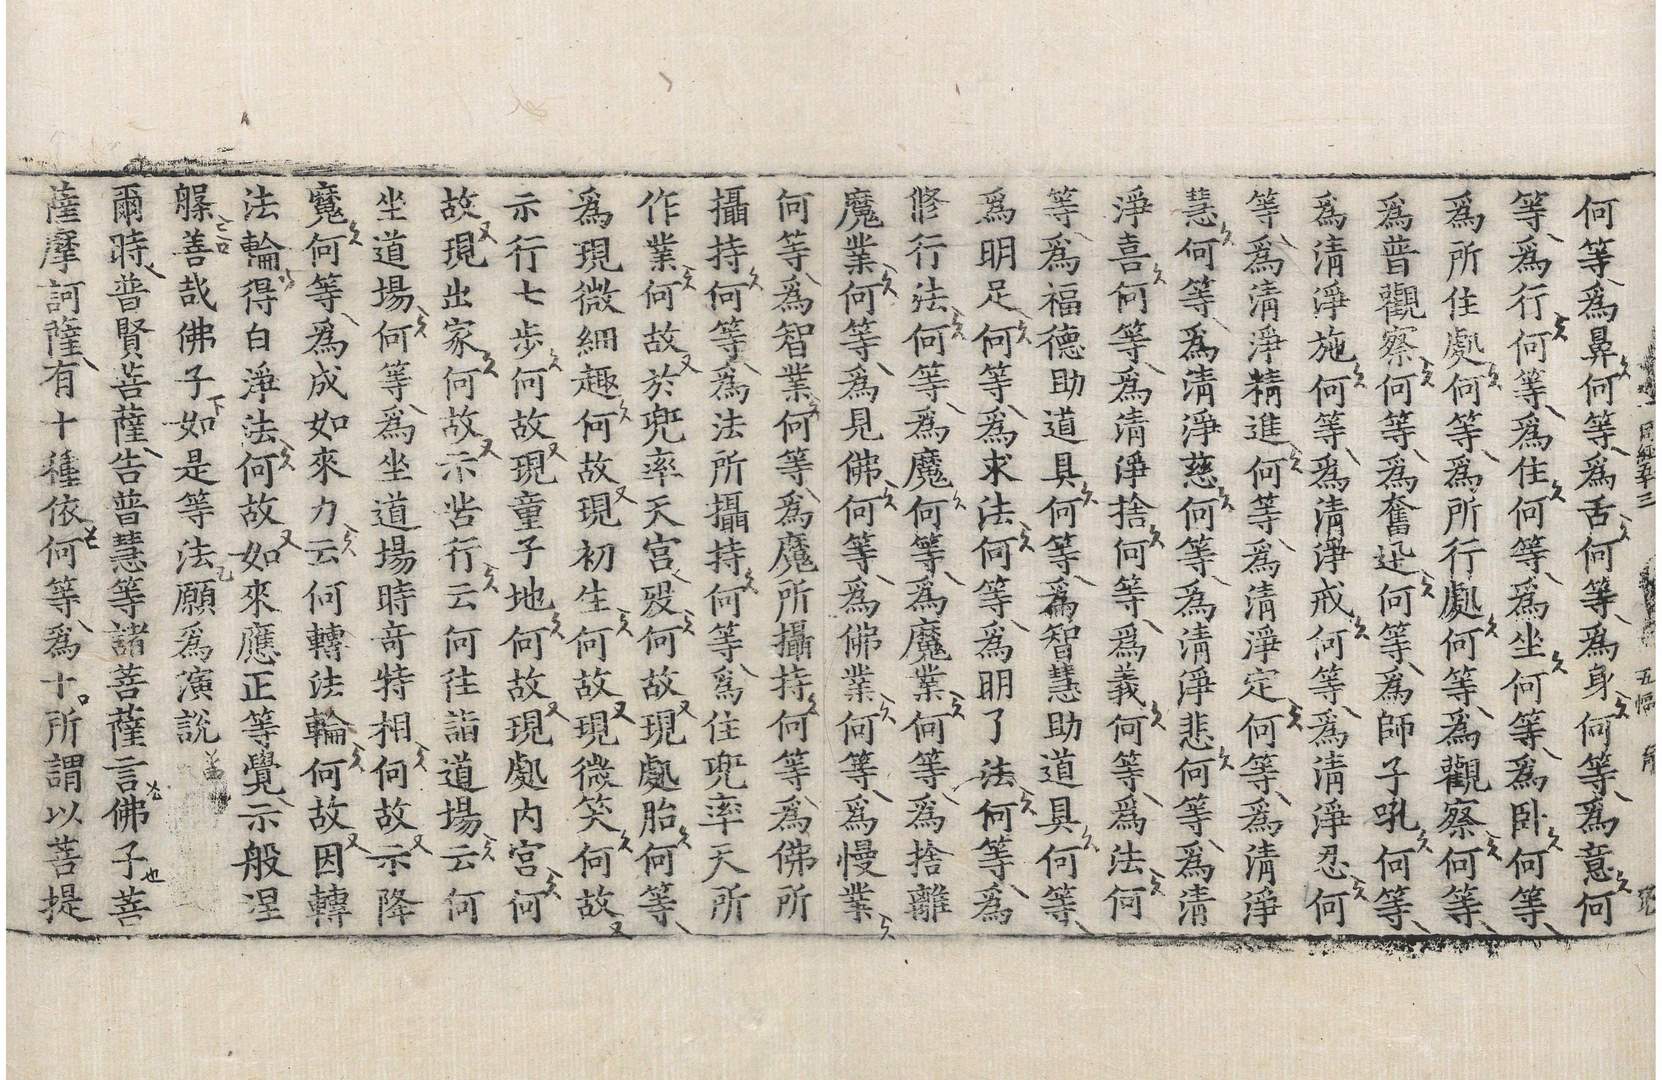 周經五十三 五幅
何等爲鼻何等爲舌何等爲身何等爲意何
等爲行何等爲住何等爲坐何等爲卧何等
爲所住處何等爲所行處何等爲觀察何等
爲普觀察何等爲奮迅何等爲師子吼何等
爲清淨施何等爲清淨戒何等爲清淨忍何
等爲清淨精進何等爲清淨定何等爲清淨
慧何等爲清淨慈何等爲清淨悲何等爲清
淨喜何等爲清淨捨何等爲義何等爲法何
等爲福德助道具何等爲智慧助道具何等
爲明足何等爲求法何等爲明了法何等爲
修行法何等爲魔何等爲魔業何等爲捨離
魔業何等爲見佛何等爲佛業何等爲慢業
何等爲智業何等爲魔所攝持何等爲佛所
攝持何等爲法所攝持何等爲住兜率天所
作業何故於兜率天宮歿何故現處胎何等
爲現微細趣何故現初生何故現微笑何故
示行七步何故現童子地何故現處内宮何
故現出家何故示苦行云何往詣道場云何
坐道場何等爲坐道場時奇特相何故示降
魔何等爲成如來力云何轉法輪何故因轉
法輪得白淨法何故如來應正等覺示般涅
槃善哉佛子如是等法願爲演說
爾時普賢菩薩告普慧等諸菩薩言佛子菩
薩摩訶薩有十種依何等爲十所謂以菩提